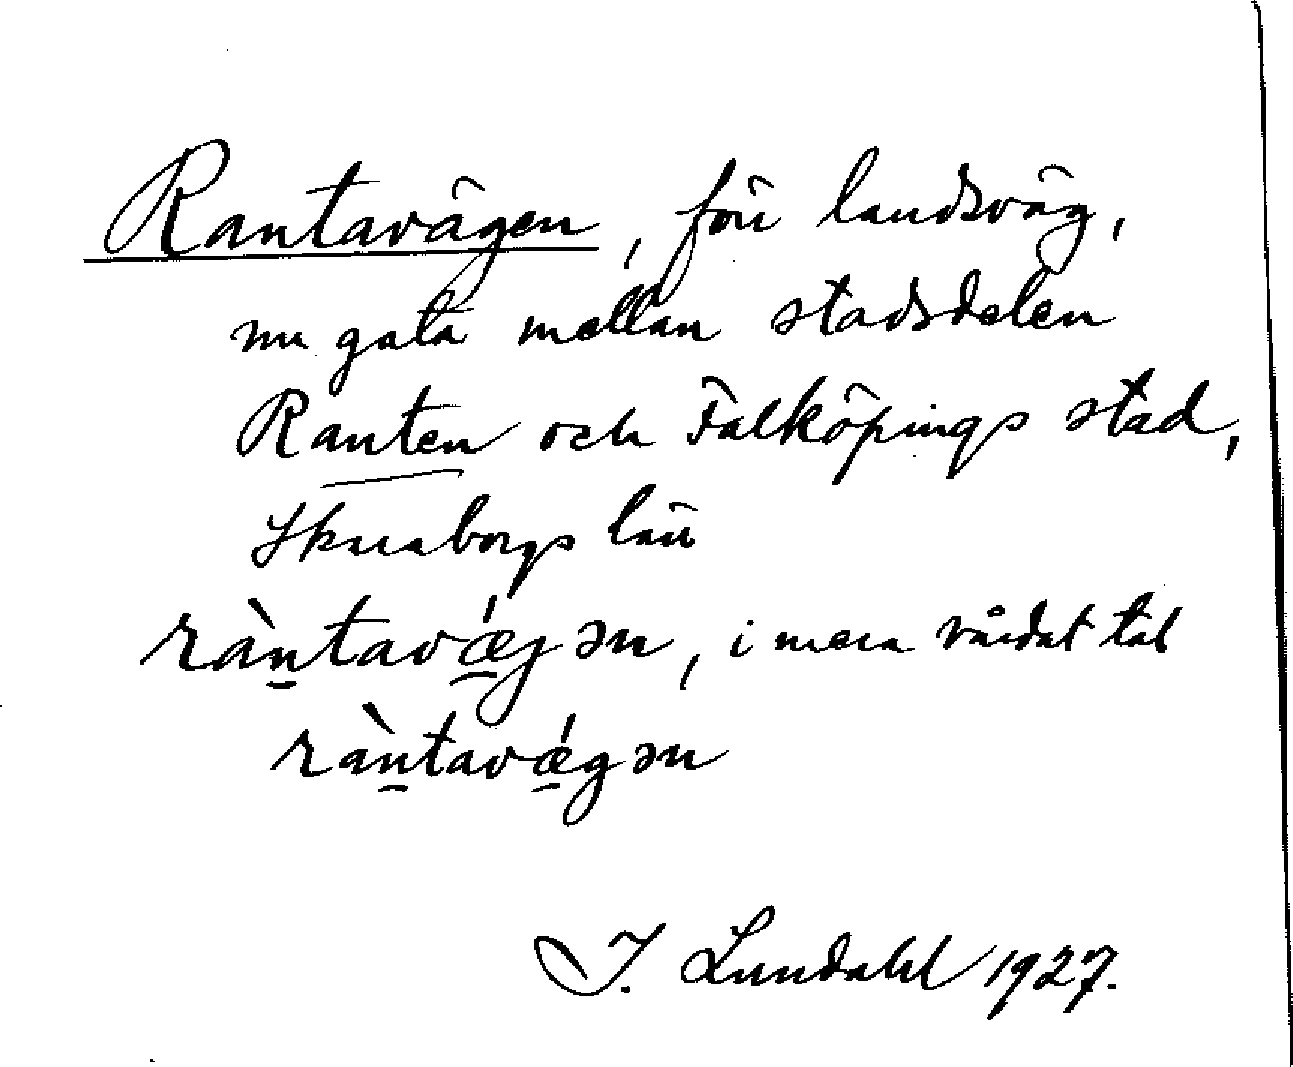 Rantavägen, förr landsväg,
nu gata mellan stadsdelen
Ranten och Falköpings stad,
Skaraborgs län
ràn̠tavǽ̠gən, i mera vårdat tal
ràn̠tavǽ̠gən
I. Lundahl 1927.